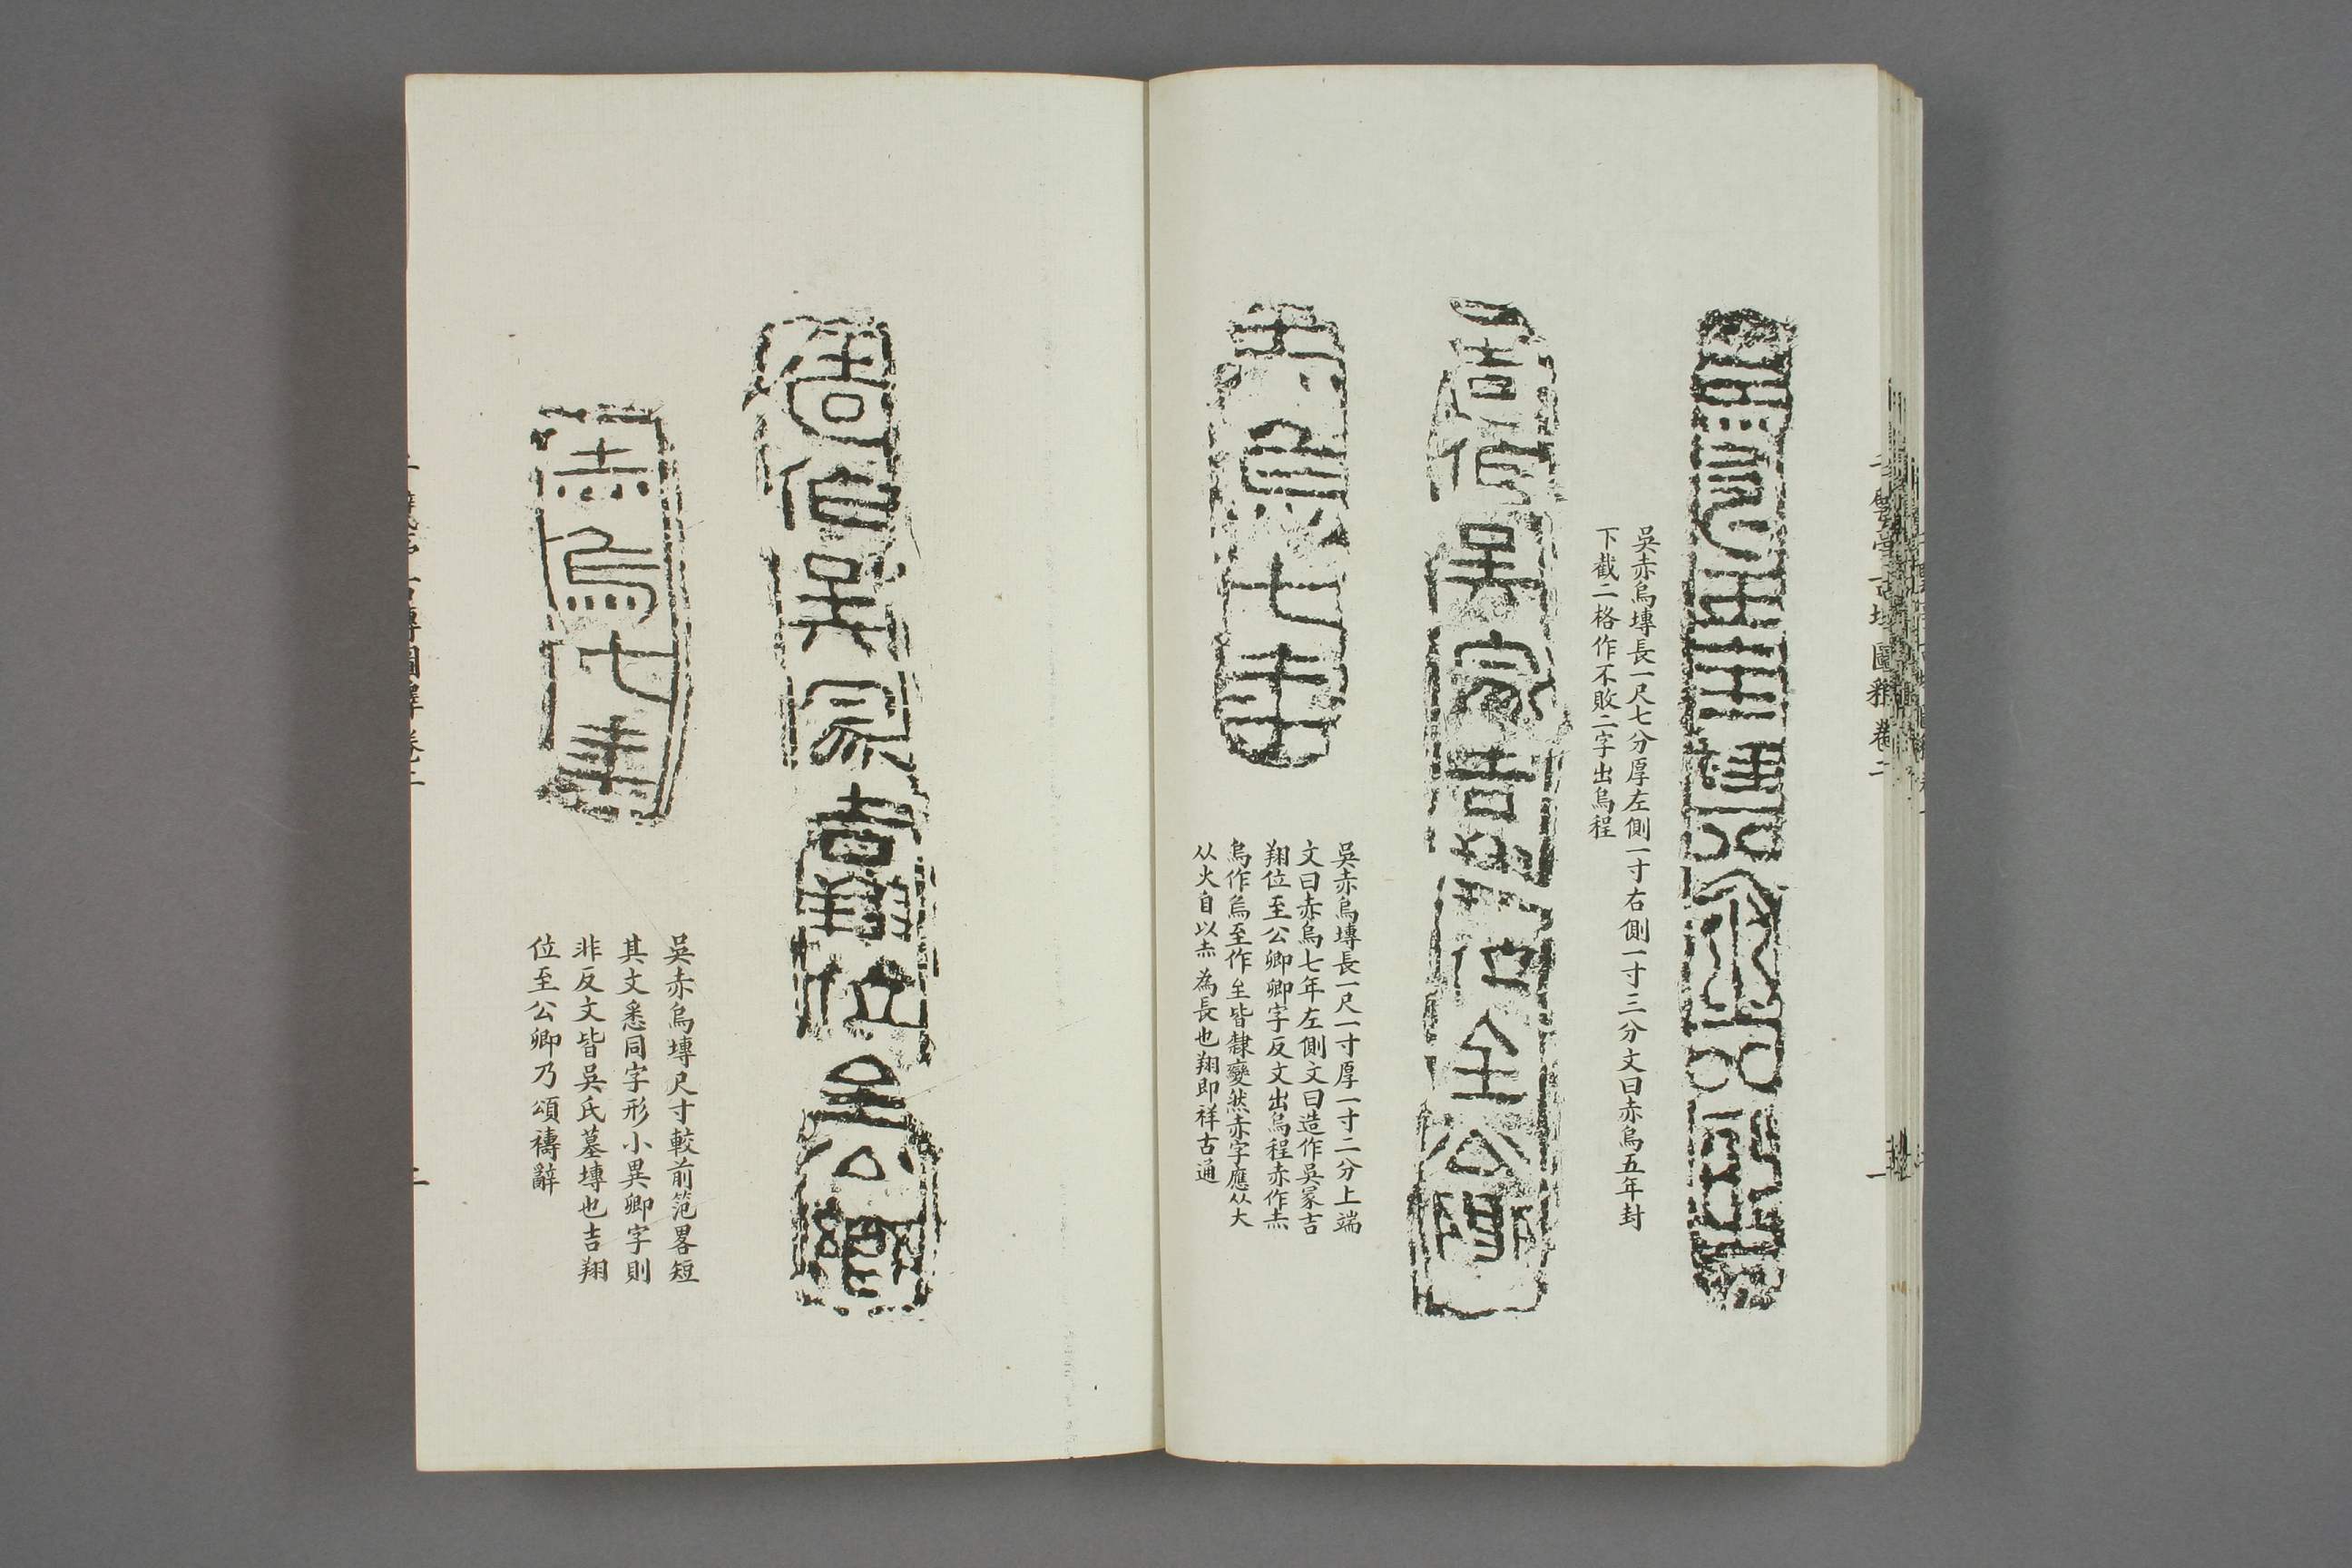 吳赤烏塼長一尺七分厚左側一寸右側一寸三分文曰赤烏五年封
下截二格作不敗二字出烏程
造作吳冡吉翔位至公卿
赤烏七年
吳赤烏塼長一尺一寸厚一寸二分上端
文曰赤烏七年左側文曰造作吳冡吉
翔位至公卿卿字反文出烏程赤作灬
烏作烏至作𦤳皆隸變然赤字應从大
从火自以灬為長也翔即祥古通
造作吳冡吉翔位至公卿
赤烏七年
吳赤烏塼尺寸較前范畧短
其文悉同字形小異卿字則
非反文皆吳氏墓塼也吉翔
位至公卿乃頌禱辭